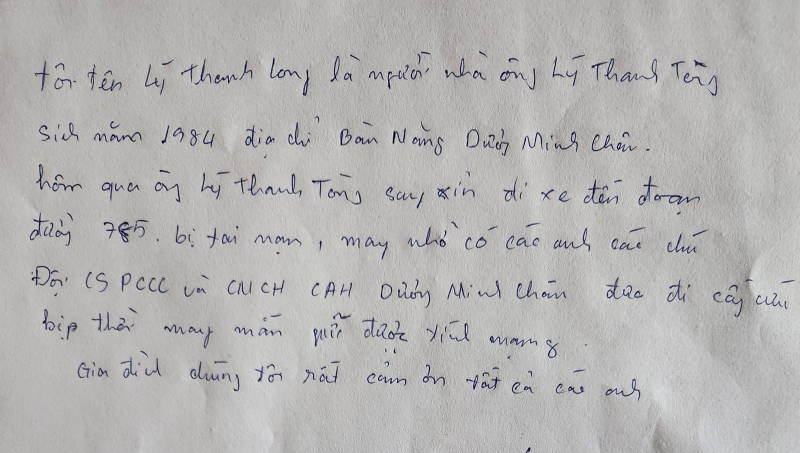 tôi tên Lý Thanh Long là người nhà ông Lý Thanh Tòng
sinh năm 1984 địa chỉ Bàn Năng Dương Minh Châu.
hôm qua ông Lý Thanh Tòng say xỉn đi xe đến đoạn
đường 785. bị tai nạn, may nhờ có các anh các chú
Đội CS PCCC và CNCH CAH Dương Minh Châu đưa đi cấp cứu
kịp thời may mắn giữ được tính mạng.
Gia đình chúng tôi rất cảm ơn tất cả các anh